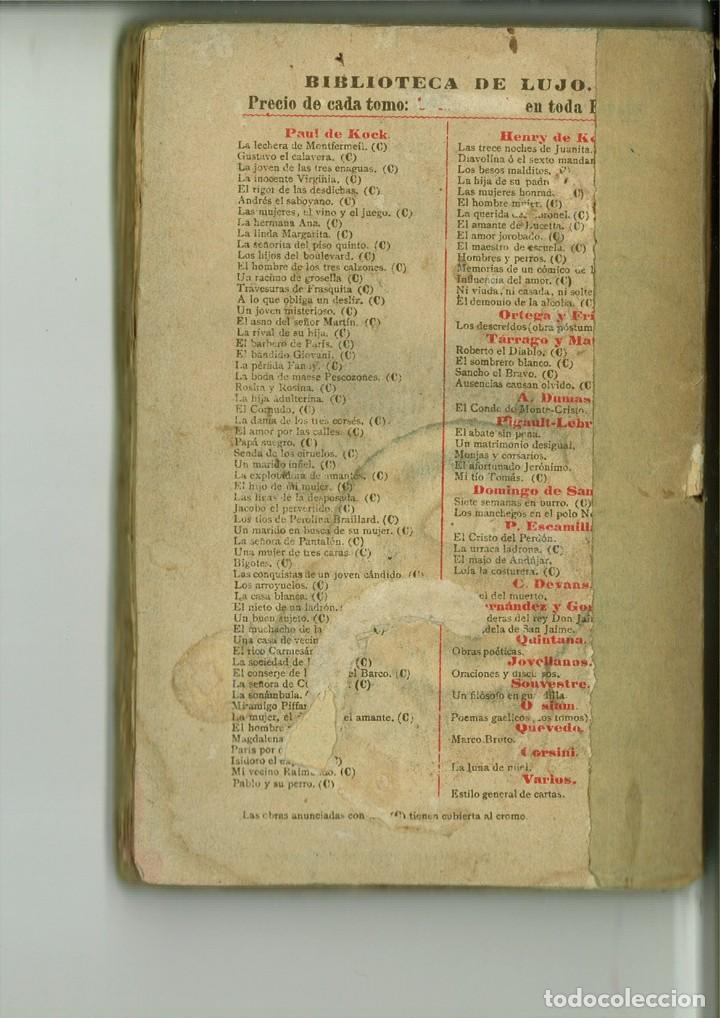 BIBLIOTECA DE LUJO.
Precio de cada tomo: en toda
Paul de Kock.
La lechera de Montfermeil. (C)
Gustavo el calavera. (C)
La joven de las tres enaguas. (C)
La inocente Virginia. (C)
El rigor de las desdichas. (C)
Andrés el saboyano. (C)
Las mujeres, el vino y el juego. (C)
La hermana Ana. (C)
La linda Margarita. (C)
La señorita del piso quinto. (C)
Los hijos del boulevard. (C)
El hombre de los tres calzones. (C)
Un racimo de grosella (C)
Travesuras de Frasquita (C)
A lo que obliga un desliz. (C)
Un joven misterioso. (C)
El asno del señor Martín. (C)
La rival de su hija. (C)
El barbero de París. (C)
El bandido Giovani. (C)
La pérfida Fanny. (C)
La boda de maese Pescozones. (C)
Rosita y Rosina. (C)
La hija adulterina. (C)
El Cornudo. (C)
La dama de los tres corsés. (C)
El amor por las calles. (C)
Papá suegro. (C)
Senda de los ciruelos. (C)
Un marido infiel. (C)
La explotadora de amantes. (C)
El hijo de mi mujer. (C)
Las ligas de la desposada. (C)
Jacobo el pervertido. (C)
Los tíos de Perolina Braillard. (C)
Un marido en busca de su mujer. (C)
La señora de Pantalón. (C)
Una mujer de tres caras (C)
Bigotes. (C)
Las conquistas de un joven cándido (C)
Los arroyuelos. (C)
La casa blanca. (C)
El nieto de un ladrón.
Un buen sujeto. (C)
El muchacho de la (C)
Una casa de (C)
El rico (C)
La sociedad de (C)
El conserje de el Barco. (C)
La señora de (C)
La sonámbula.
Mi amigo
La mujer, el el amante. (C)
El hombre
Magdalena
París por
Isidoro el
Mi vecino (C)
Pablo y su perro. (C)
Henry de
Las trece noches de Juanita.
Diavolina ó el sexto
Los besos malditos. (C)
La hija de su
Las mujeres (C)
El hombre mujer. (C)
La querida (C)
El amante de Lucetta. (C)
El amor jorobado. (C)
El maestro de escuela. (C)
Hombres y perros. (C)
Memorias de un cómico
Influencia del amor. (C)
Ni viuda, ni casada, ni
El demonio de la alcoba.
Ortega y
Los descreídos (obra
Tárrago y
Roberto el Diablo. (C)
El sombrero blanco. (C)
Sancho el Bravo. (C)
Ausencias causan olvido.
A. Dumas
El Conde de Monte-Cristo.
El abate sin pena.
Un matrimonio desigual.
Monjas y corsarios.
El afortunado Jerónimo.
Mi tío Tomás. (C)
Domingo de
Siete semanas en burro. (C)
Los manchegos en el polo
P.
El Cristo del Perdón.
La urraca ladrona. (C)
El majo de Andújar.
Lola la costurera. (C)
C. Devans.
del muerto.
y
del rey Don
de San Jaime.
Quintana.
Obras poéticas.
Jovellanos.
Oraciones y
Souvestre.
Un filósofo en
Poemas gaelicos
Quevedo.
Marco Bruto.
Corsini.
La luna de miel.
Varios.
Estilo general de cartas.
Las obras anunciadas con (C) tienen cubierta al cromo.
todocoleccion
todocoleccion.net